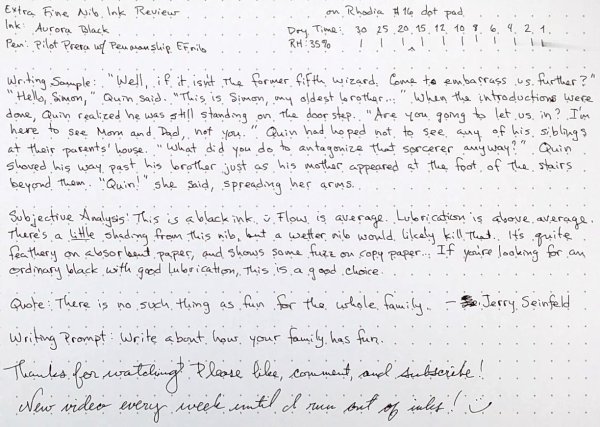 Extra Fine Nib Ink Review on Rhodia #16 dot pad
Ink: Aurora Black Dry Time: 30 25 20 15 12 10 8 6 4 2 1
Pen: Pilot Prera w/ Penmanship EF nib RH: 35%
Writing Sample: "Well, if it isn't the former fifth wizard. Come to embarrass us further?"
"Hello, Simon," Quin said. "This is Simon, my oldest brother..." When the introductions were
done, Quin realized he was still standing on the doorstep. "Are you going to let us in? I'm
here to see Mom and Dad, not you." Quin had hoped not to see any of his siblings
at their parents' house. "What did you do to antagonize that sorcerer anyway?" Quin
shoved his way past his brother just as his mother appeared at the foot of the stairs
beyond them. "Quin!" she said, spreading her arms.
Subjective Analysis: This is a black ink. Flow is average. Lubrication is above average.
There's a little shading from this nib, but a wetter nib would likely kill that. It's quite
feathery on absorbent paper, and shows some fuzz on copy paper... If you're looking for an
ordinary black with good lubrication, this is a good choice.
Quote: There is no such thing as fun for the whole family. — Jerry Seinfeld
Writing Prompt: Write about how your family has fun.
Thanks for watching! Please like, comment, and subscribe!
New video every week until I run out of inks!